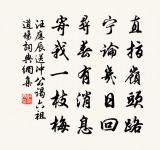 直指嶺頭路
寧論幾日回
尋春有消息
寄我一枝梅
汪應辰送沖公謁六祖
道場詞典網集